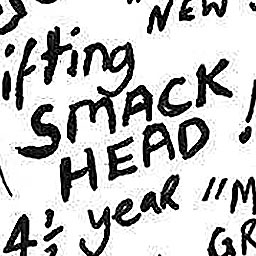 "NEW
ifting
SMACK
HEAD!
4½ year "M
GR